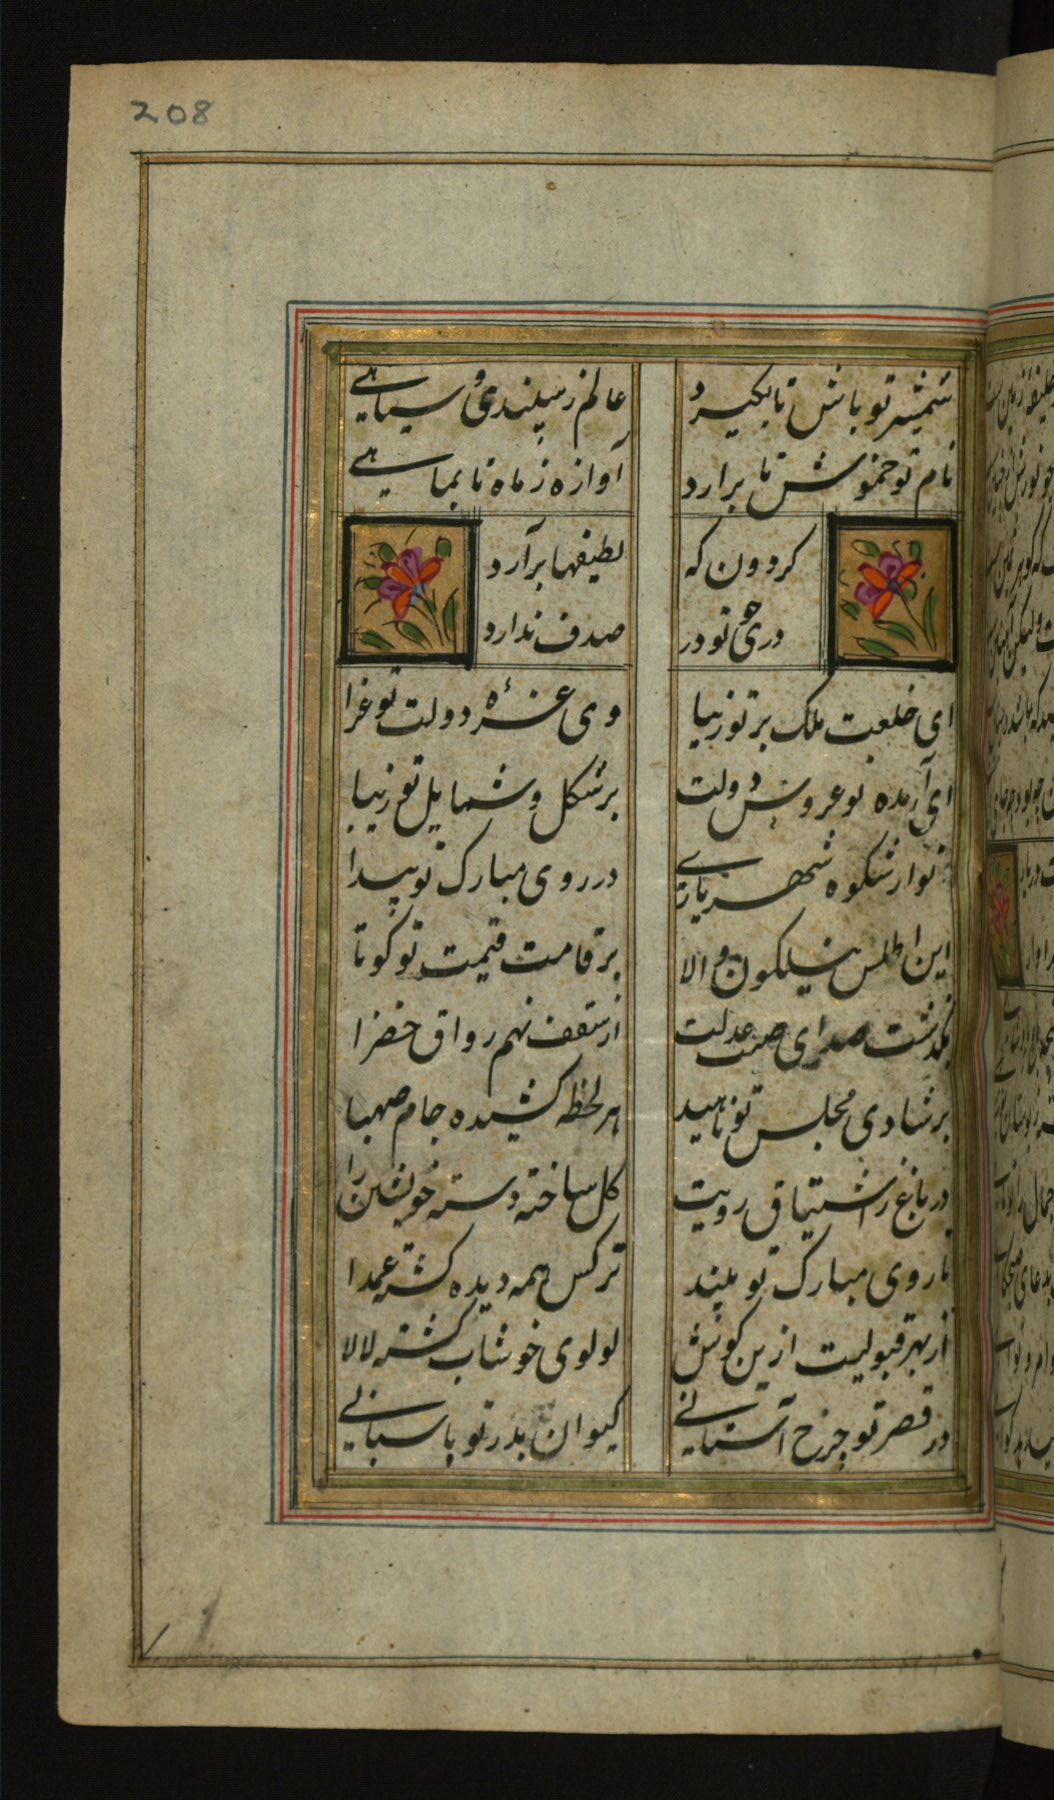 208
شمشیر تو باش تا بگیرد
عالم ز سپیدی و سیاهی
نام تو خمش تا برارد
آوازه ز ماه تا بماهی
کردون که
لطیفها برآرد
درجی تو در
صدف ندارد
ای خلعت ملک بر تو زیبا
وی غره دولت تو غرا
ای آمده نو عروس دولت
بر شکل و شمایل تو زیبا
انوار شکوه شهریاری
در روی مبارک تو پیدا
این اطلس نیلکون والا
بر قامت قیمت تو کوتا
بگذشت صدای صیت عدلت
از سقف نهم رواق خضرا
بر شادی مجلس تو ناهید
هر لحظه کشیده جام صهبا
در باغ ز اشتیاق رویت
کل ساخته دسته خویشتن را
تا روی مبارک تو بیند
نرکس همه دیده کشته عمدا
از بهر قبولیت ازین کوش
لولوی خوشاب کشته لالا
در قصر تو چرخ آستانی
کیوان بدر تو پاسبانی